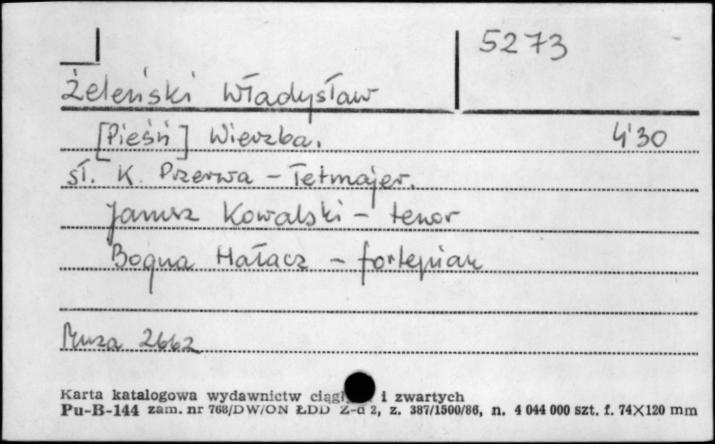 5273
Żeleński Władysław
[Pieśń] Wierzba. 4'30
sł. K. Przerwa - Tetmajer.
Janusz Kowalski - tenor
Bogna Hałacz - fortepian
Muza 2662
Karta katalogowa wydawnictw i zwartych
Pu-B-144 zam. nr 768/DW/ON ŁDD 2, z. 387/1500/86, n. 4 044 000 szt. f. 74×120 mm